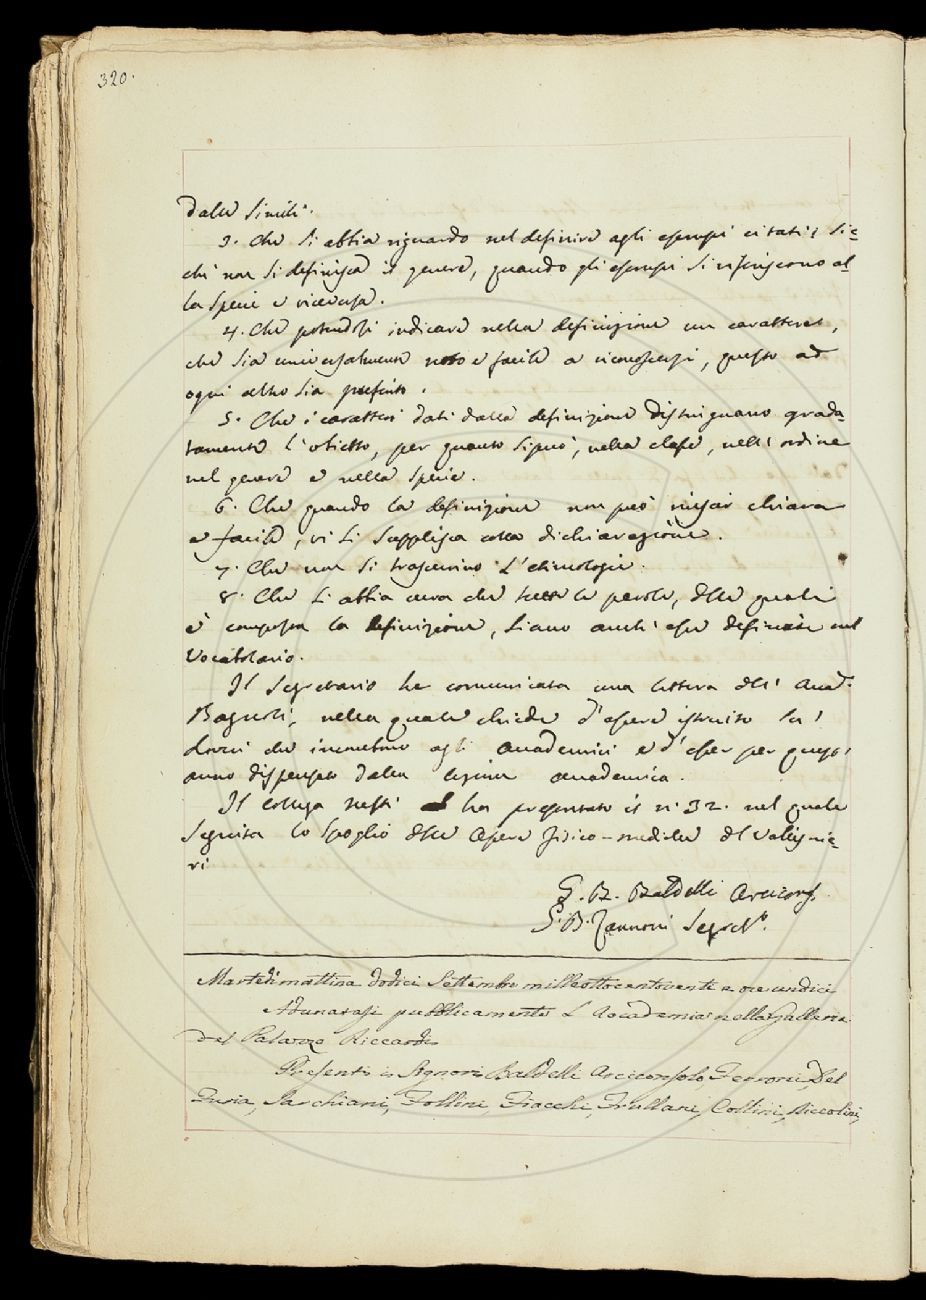 320.
dalle Simili.
3. Che si abbia riguardo nel definire agli esempi citati; sic=
chè non si definisca il genere, quando gli esempi si riferiscono al=
la specie e viceversa.
4. Che potendosi indicare nella definizione un carattere,
che sia universalmente noto e facile a riconoscersi, questo ad
ogni altro sia preferito.
5. Che i caratteri dati dalla definizione distinguano grada=
tamente l'obietto, per quanto si può, nella classe, nell'ordine
nel genere e nella specie.
6. Che quando la definizione non può riuscir chiara
e facile, vi si supplisca colla dichiarazione.
7. Che non si trascurino l'etimologie.
8. Che si abbia cura che tutte le parole, delle quali
è composta la definizione, siano anch'esse definite nel
Vocabolario.
Il Segretario ha comunicata una lettera dell'Accad.
Bagnoli, nella quale chiede d'essere istruito su i
doveri che incombono agli Accademici e d'esser per quest'
anno dispensato dalla lezione accademica.
Il Collega Nesti ha presentato il n. 32. nel quale
seguita lo Spoglio delle Opere fisico-mediche del Vallisnie=
ri
G. B. Baldelli Arcicons.
G. B. Zannoni Segret.º
Martedì mattina dodici Settembre milleottocentoventi a ore undici
Adunatasi pubblicamente l'Accademia nella Galleria
del Palazzo Riccardi
Presenti i Signori Baldelli Arciconsolo, Ferroni, Del
Furia, Sarchiani, Follini, Fiacchi, Frullani, Collini, Niccolini,